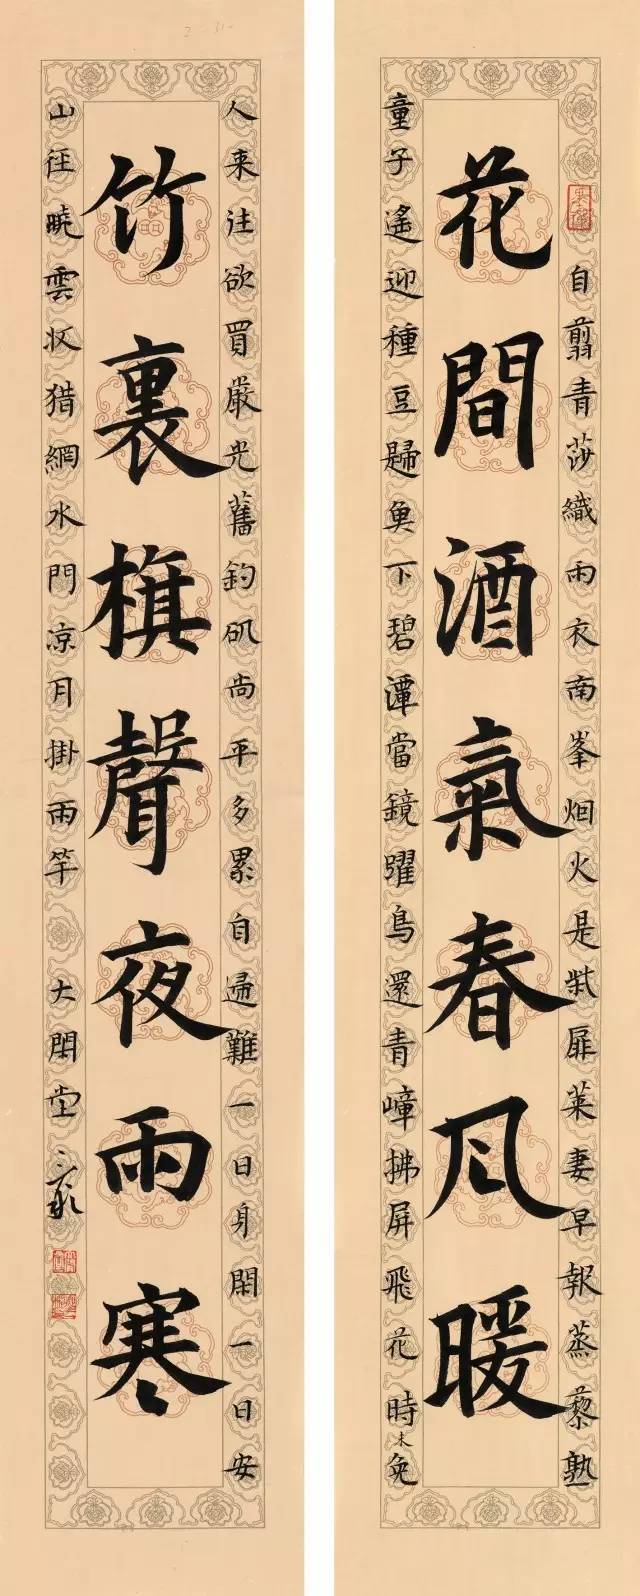 自翦青莎織雨衣南峯烟火是柴扉萊妻早報蒸藜熟
花間酒氣春风暖
童子遙迎種豆歸魚下碧潭當鏡躍鳥還青嶂拂屏飛花時未免
人来往欲買嚴光舊釣矶尚平多累自歸難一日身閑一日安
竹裏棋聲夜雨寒
山徑曉雲收猎網水門凉月掛雨竿 大閑堂